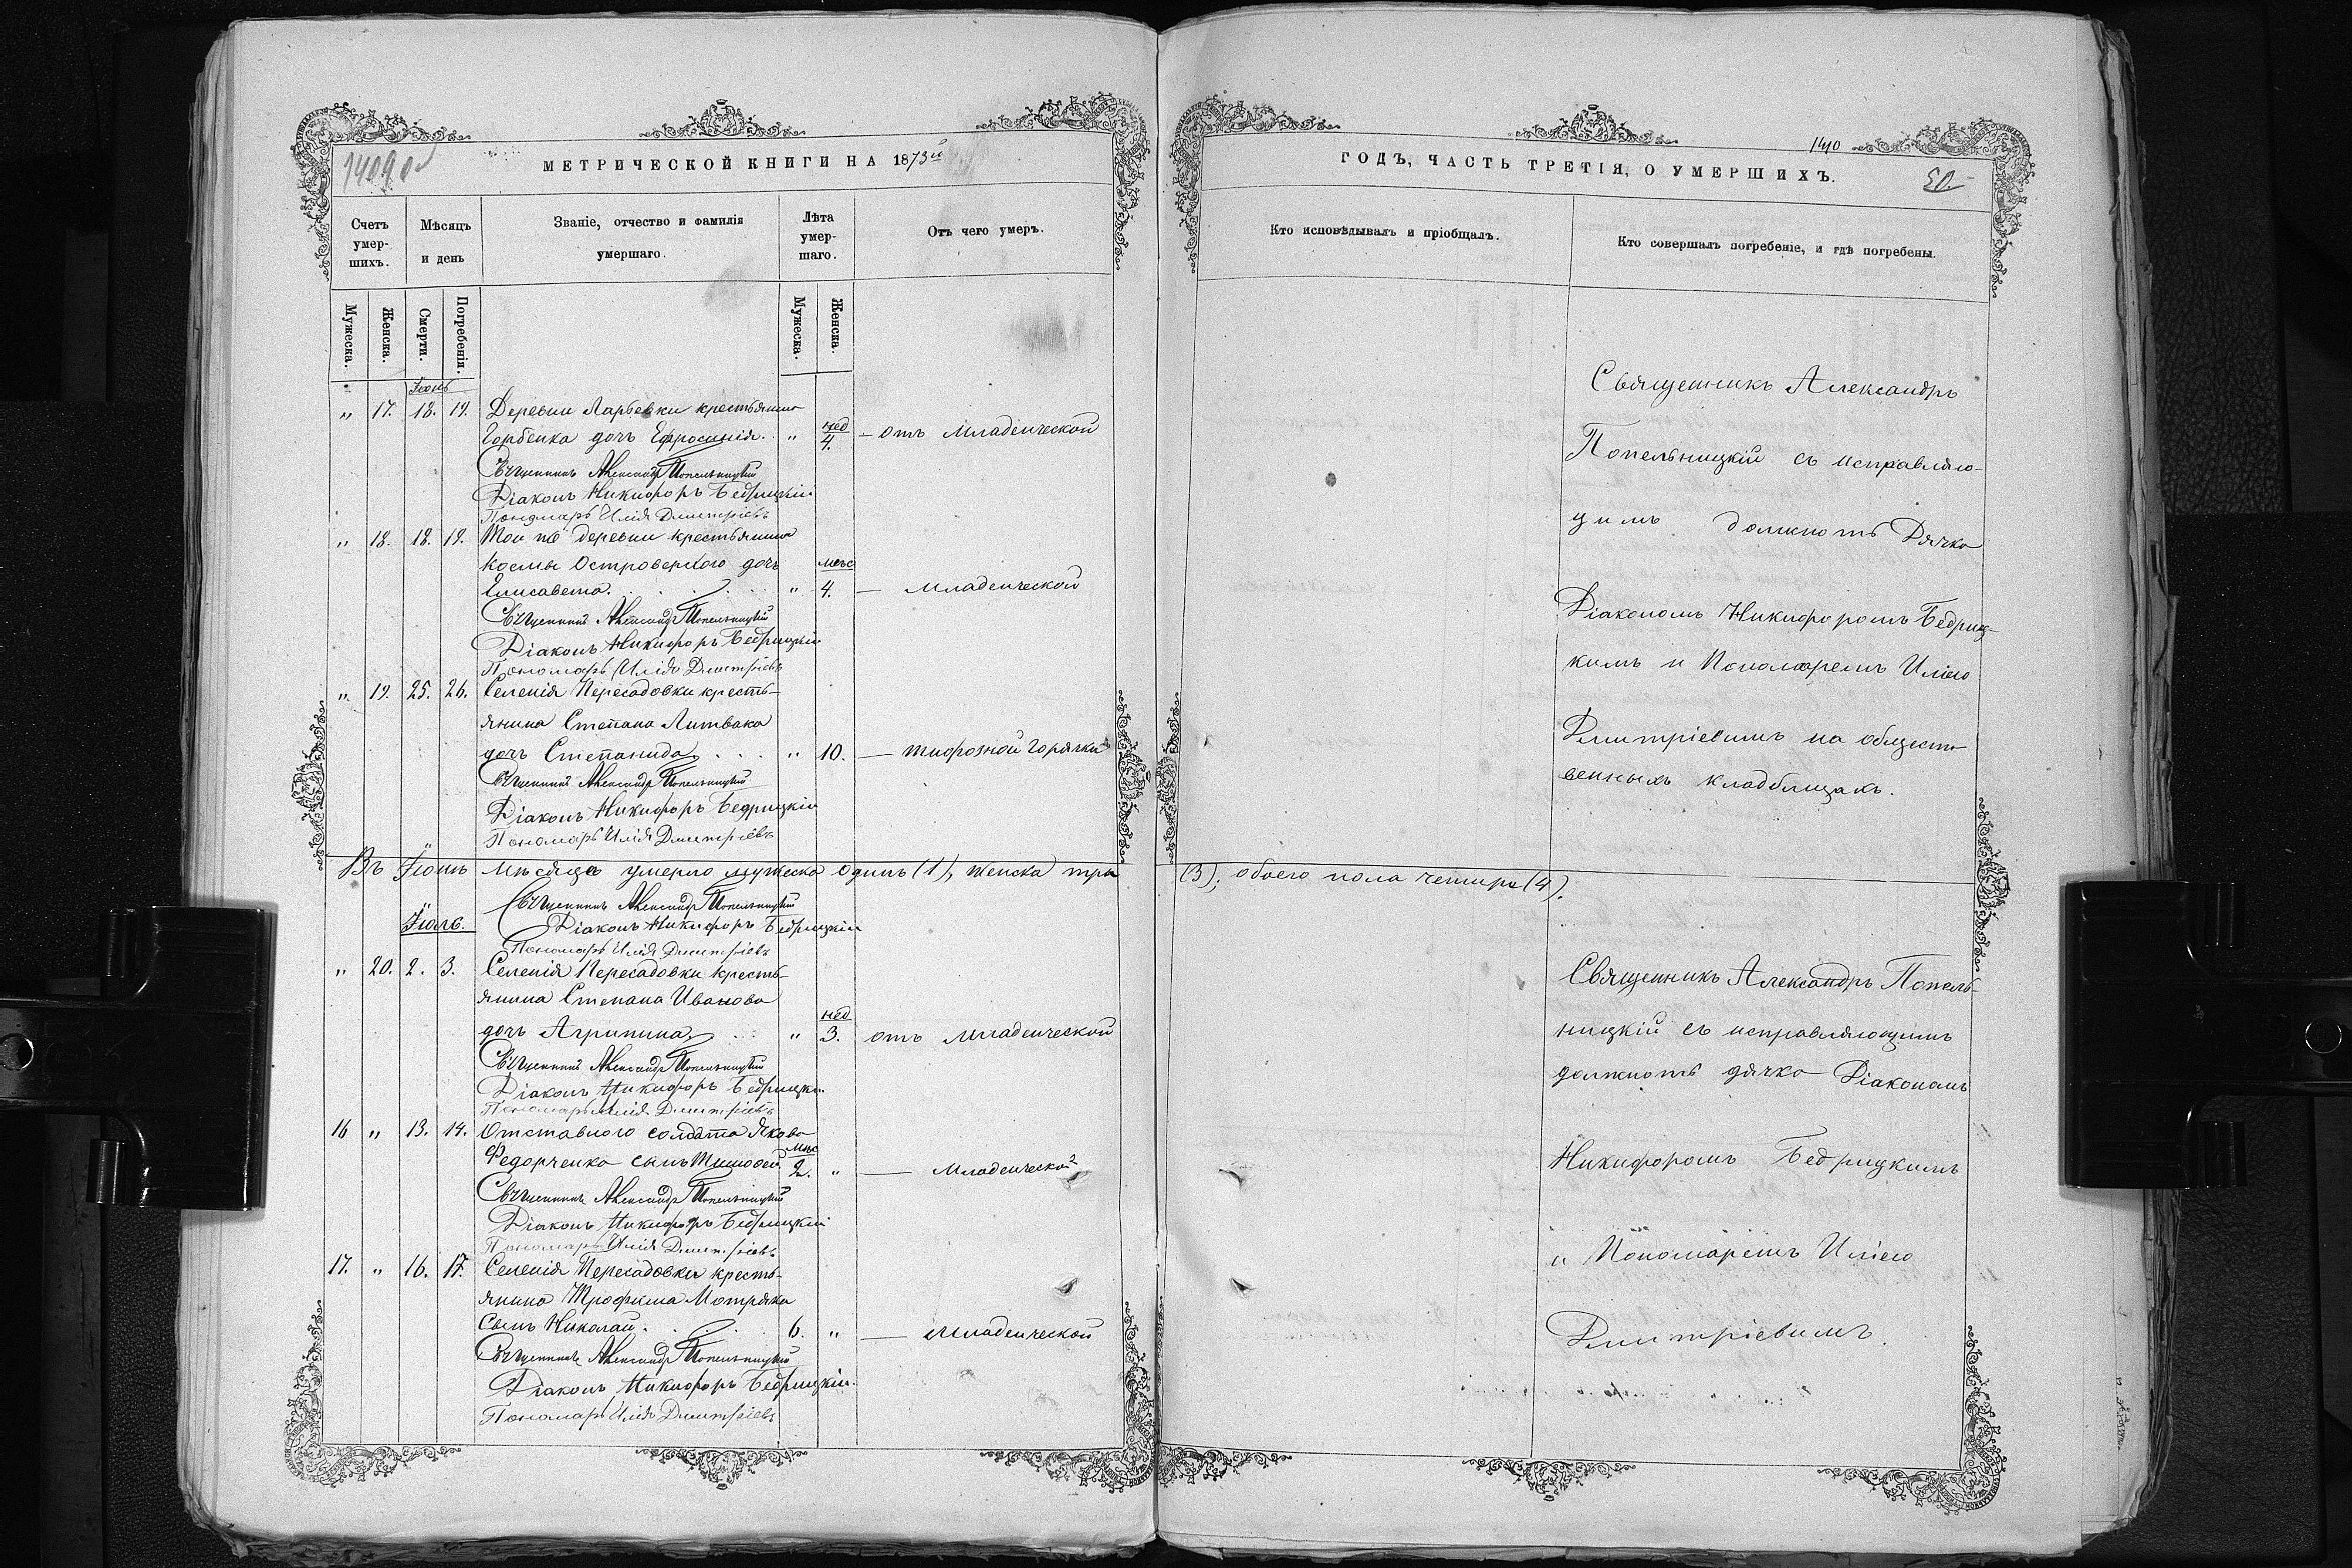 МЕТРИЧЕСКОЙ КНИГИ НА 1873й
Счетъ умер-шихъ.
Мѣсяцъ и день
Званіе, отчество и фамилія умершаго.
Лѣта умер-шаго.
Отъ чего умеръ.
Мужеска.
Женска.
Смерти.
Погребенія.
Мужеска.
Женска.
Іюнь
„ 17. 18. 19. Деревни Ларьевки крестьянина
Горбенка дочь Ефросинія . . „ нед 4. — отъ младенческой
Священникъ Александръ Попельницкій
Діаконъ Никифоръ Бедрицкій
Пономарь Илія Дмитріевъ
„ 18. 18. 19. Той же деревни крестьянина
Космы Островерхого дочь мѣс
Елисавета. . . . „ 4. — младенческой
Священникъ Александръ Попельницкій
Діаконъ Никифоръ Бедрицкій
Пономарь Илія Дмитріевъ
„ 19. 25. 26. Селенія Пересадовки кресть-
янина Степана Литвака
дочь Степанида . . . „ 10. — тифозной горячки
Священникъ Александръ Попельницкій
Діаконъ Никифоръ Бедрицкій
Пономарь Илія Дмитріевъ
Въ Іюнѣ мѣсяцѣ умерло мужеска одинъ (1), женска три
Священникъ Александръ Попельницкій
Іюль. Діаконъ Никифоръ Бедрицкій
Пономарь Илія Дмитріевъ
„ 20. 2. 3. Селенія Пересадовки кресть-
янина Степана Иванова
дочь Агрипина . . . „ нед 3. отъ младенческой
Священникъ Александръ Попельницкій
Діаконъ Никифоръ Бедрицкій
Пономарь Илія Дмитріевъ
16 „ 13. 14. Отставного солдата Якова
Федорченка сынъ мѣс 2. „ — младенческой
Священникъ Александръ Попельницкій
Діаконъ Никифоръ Бедрицкій
Пономарь Илія Дмитріевъ
17. „ 16. 17. Селенія Пересадовки кресть-
янина Трофима Мотряка
сынъ Николай. . . . 6. „ — младенческой
Священникъ Александръ Попельницкій
Діаконъ Никифоръ Бедрицкій
Пономарь Илія Дмитріевъ
1410
ГОДЪ, ЧАСТЬ ТРЕТІЯ, О УМЕРШИХЪ.
50
Кто исповѣдывалъ и пріобщалъ.
Кто совершалъ погребеніе, и гдѣ погребены.
Священникъ Александръ
Попельницкій съ исправляю-
щимъ должность Дячка
Діакономъ Никифоромъ Бедриц-
кимъ и Пономаремъ Иліею
Дмитріевимъ на обществ
венныхъ кладбищахъ.
(3), обоего пола четыре (4).
Священникъ Александръ Попель-
ницкій съ исправляющимъ
должность дячка Діакономъ
Никифоромъ Бедрицкимъ
и Пономаремъ Иліею
Дмитріевимъ.